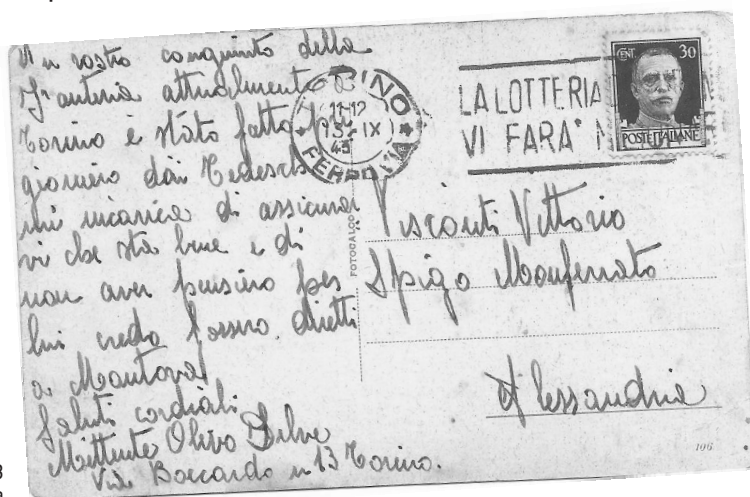 Un vostro congiunto della
Fanteria attualmente a
Torino è stato fatto pri
gioniero dai Tedeschi
mi incarica di assicurar
vi che sta bene e di
non aver pensiero per
lui credo fossero diretti
a Mantova
Saluti cordiali
Mittente Olivo Silve
Via Boccardo n 13 Torino.
INO
11-12
13 IX
43
FERROVIA
LA LOTTERIA
VI FARA'
CENT 30
POSTE ITALIANE
FOTOCALCO
Visconti Vittorio
Spigo Monferrato
Alessandria
106